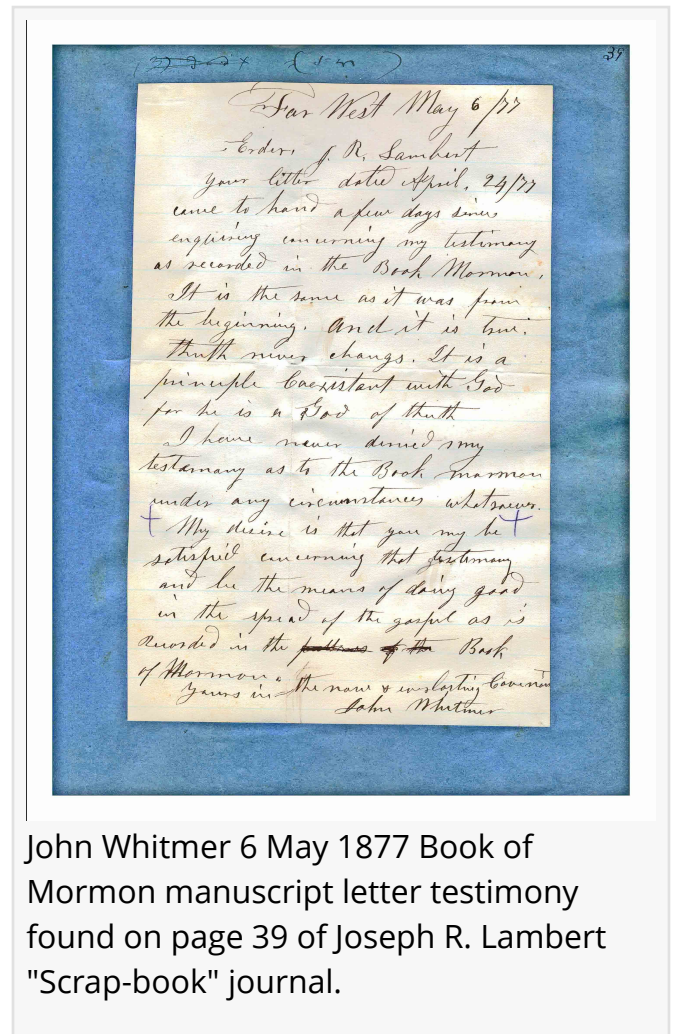 39
Far West May 6/77
Erder. J. R. Lambert
your litter dated April. 24/77
came to hand a few days since
enquiring concerning my testimony
as recorded in the Book Mormon.
It is the same as it was from
the beginning. And it is true.
thuth never changs. It is a
principle Coexistant with God
for he is a God of thuth
I have never denied my
testamany as to the Book marmon
under any circumstances whatsoever.
My desire is that you my be
satisfied concerning that testimony
and be the means of doing good
in the spread of the gospel as is
recorded in the Book
of Mormon.
Yours in the now & everlasting Covenan
John Whitmer
John Whitmer 6 May 1877 Book of
Mormon manuscript letter testimony
found on page 39 of Joseph R. Lambert
"Scrap-book" journal.